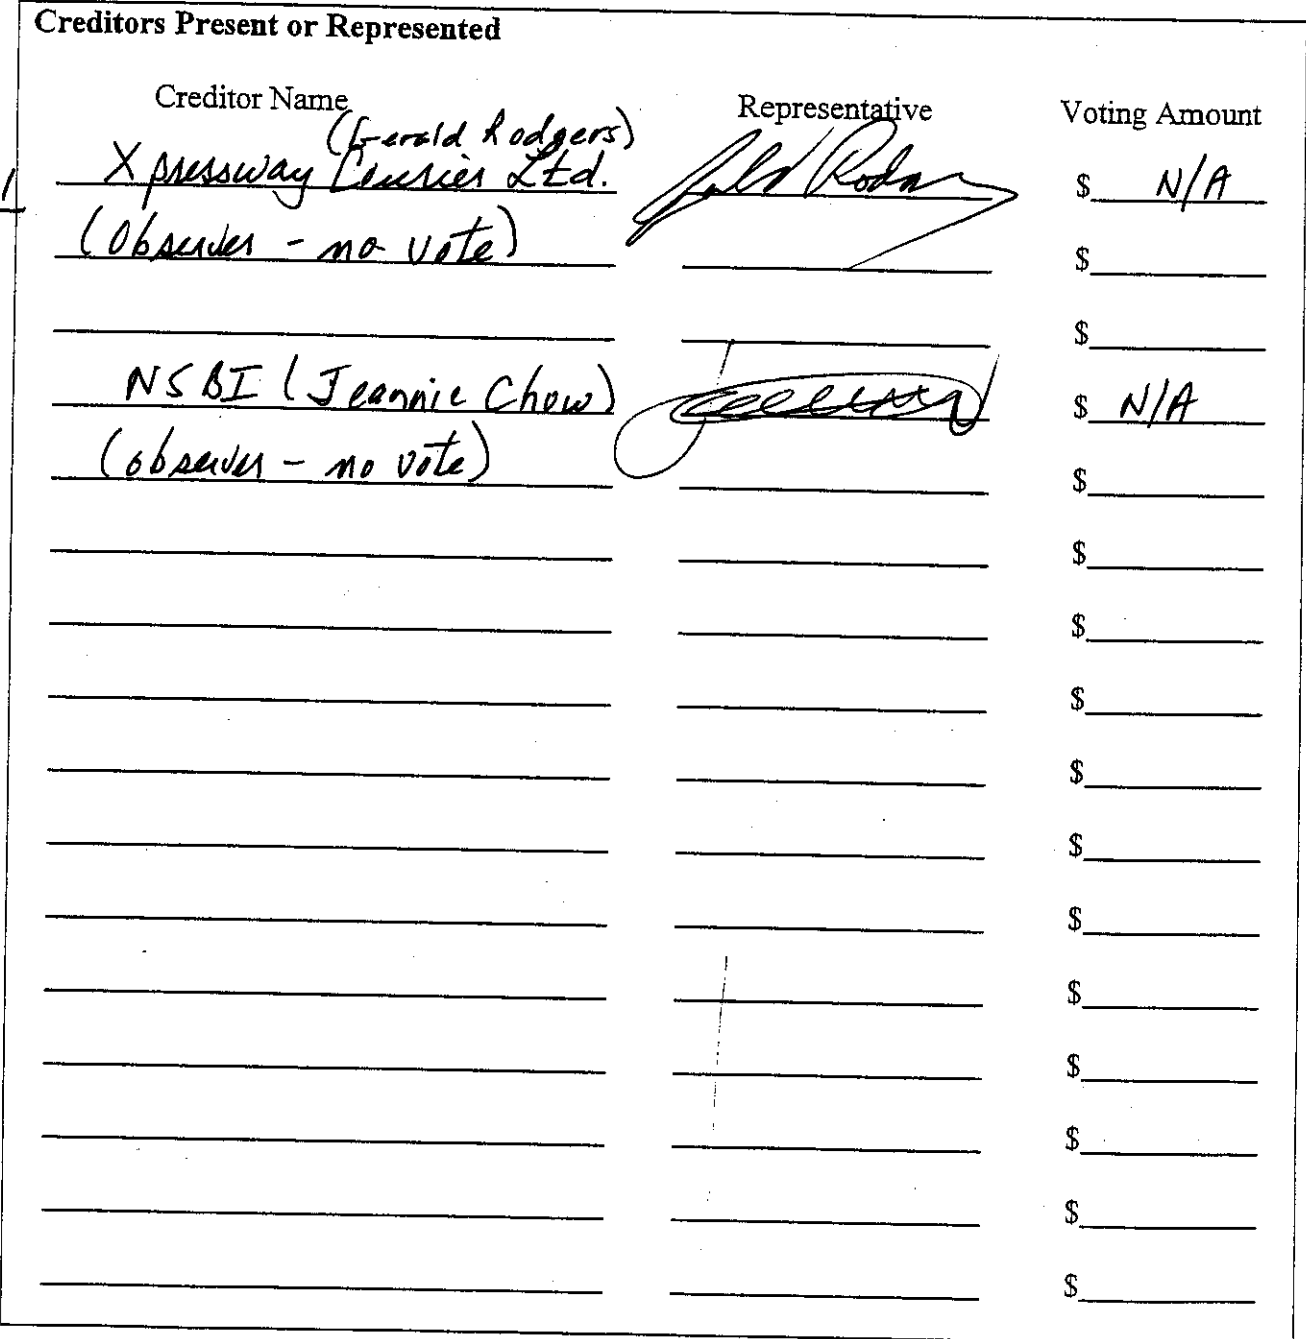 Creditors Present or Represented
Creditor Name Representative Voting Amount
(Gerald Rodgers)
Xpressway Courier Ltd. $ N/A
(Observer - no vote) $
$
NSBI (Jeannie Chow) $ N/A
(observer - no vote) $
$
$
$
$
$
$
$
$
$
$
$